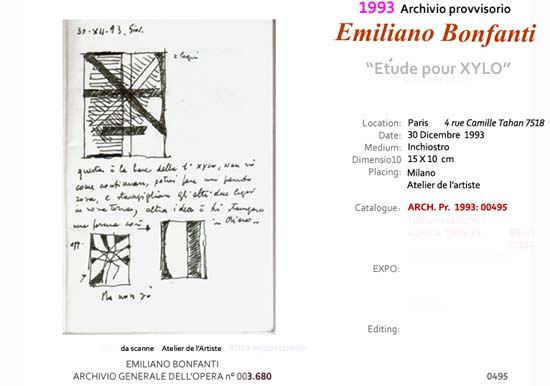 1993 Archivio provvisorio
Emiliano Bonfanti
"Etúde pour XYLO"
Location: Paris 4 rue Camille Tahan 7518
Date: 30 Dicembre 1993
Medium: Inchiostro
Dimensio10 15 X 10 cm
Placing: Milano
Atelier de l'artiste
Catalogue: ARCH. Pr. 1993: 00495
EXPO:
Editing:
30-XII-93, Giov.
2 legni
questa è la base della 1° xylo, non so
come continuare, potrei fare un fondo
rosa, e tagliare gli altri due legni
in
altra idea è di
una forma così
in
opp.
?
Ma non so
da scanne Atelier de l'Artiste Altra esposizione
EMILIANO BONFANTI
ARCHIVIO GENERALE DELL'OPERA n° 003.680
0495